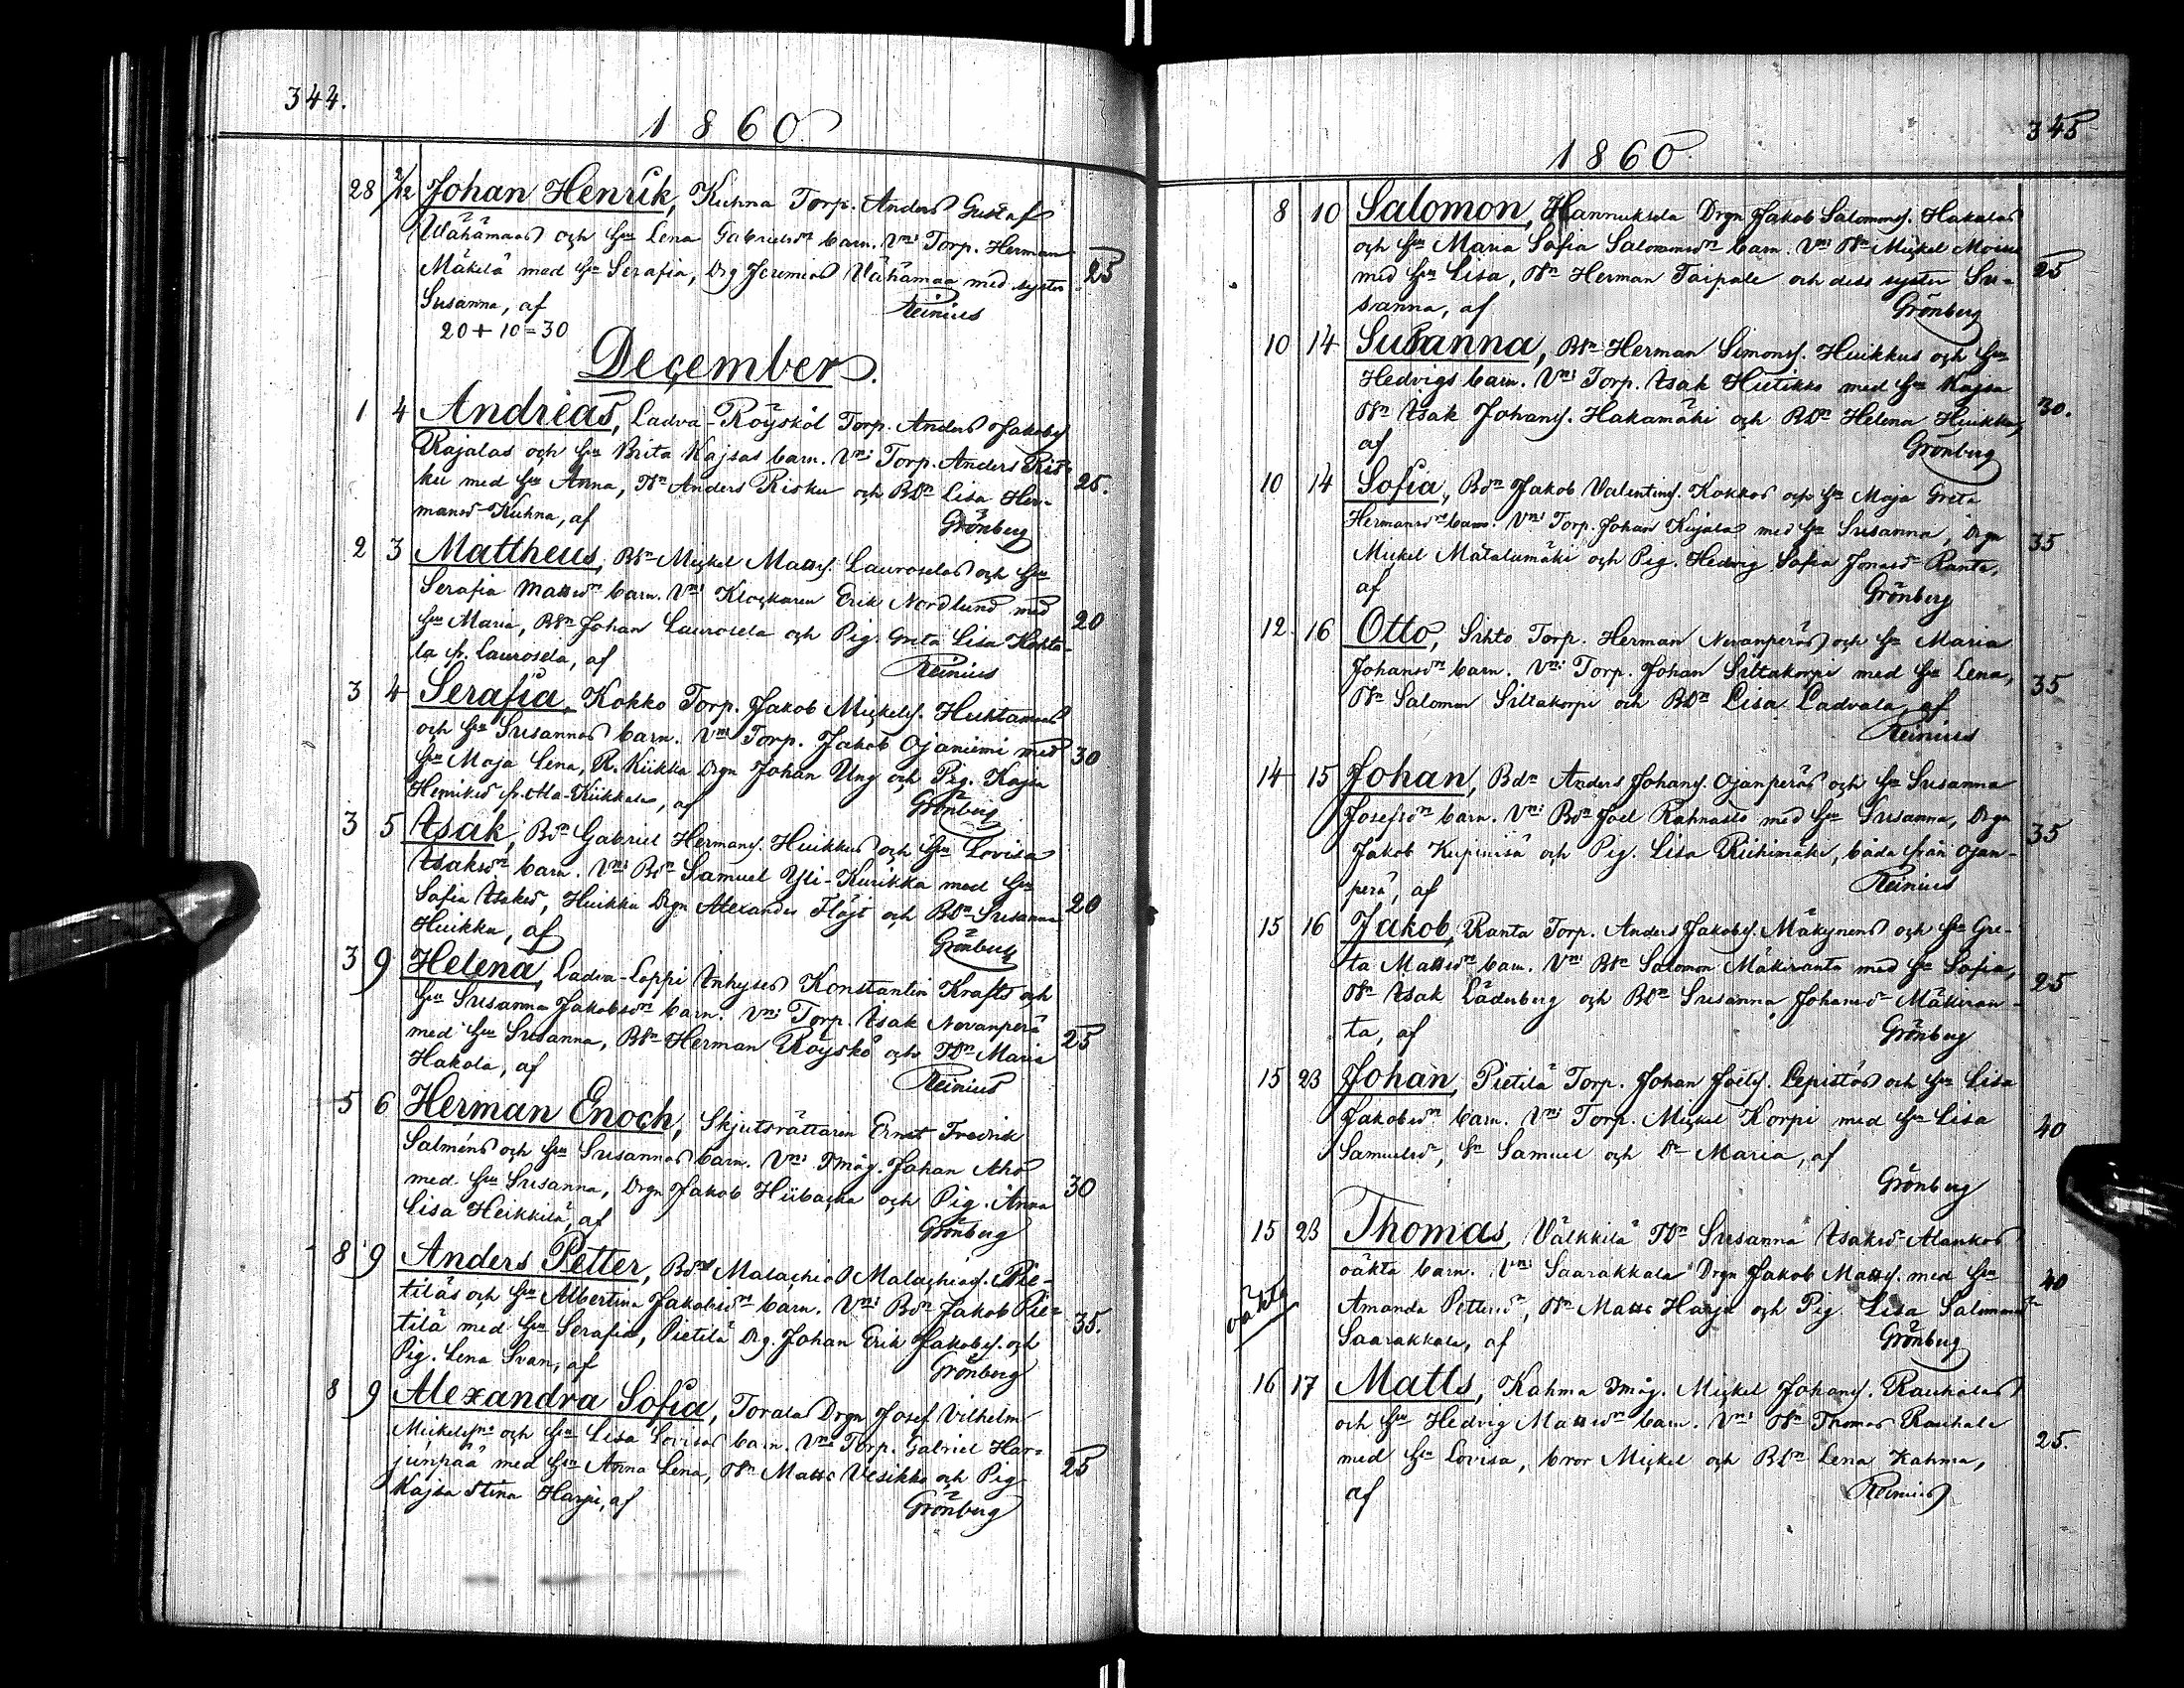 344.
1860.
28 2/12 Johan Henrik, Kuhna Torp. Anders Gustaf
Wähämaas och Hu Lena Gabrielsdr barn. Vn: Torp. Herman
Mäkelä med Hu Serafia, Drg Jeremias Vähämaa med syster 25
Susanna, af Reinius
20 + 10 = 30
December.
1 4 Andreas, Ladva-Röysköl Torp. Anders Jakobs.
Rajalas och Hu Brita Kajsas barn. Vn: Torp. Anders Ris-
ku med Hu Anna, Dn Anders Risku och BDn Lisa Her- 25.
mansd Kuhna, af Grönberg
2 3 Mattheus, Bdn Mickel Matts. Lauroselas och Hu
Serafia Mattsdr barn. Vn: Klockaren Erik Nordlund med
Hu Maria, Bdn Johan Laurosela och Pig. Greta Lisa 20
la fr. Laurosela, af Reinius
3 4 Serafia, Kokko Torp. Jakob Mickels. Huhtamaas
och Hu Susannas barn. Vn: Torp. Jakob Ojaniemi med
Hu Maja Lena, R. Kiikka Drgn Johan Ung och Pig. Kajsa 30
Henriksd fr. Ala-Kiikkala, af Grönberg
3 5 Isak, Bdn Gabriel Hermans. Huikkus och Hu Lovisa
Isaksdr barn. Vn: Bdn Samuel Yli-Kurikka med Hu
Sofia Isaksd, Huikku Drgn Alexander Flöjt och BDn Susanna 20
Huikku, af Grönberg
3 9 Helena, Ladva-Loppi Inhyses Konstantin Krafts och
Hu Susanna Jakobsdr barn. Vn: Torp. Isak Nevanperä
med Hu Susanna, Bdn Herman Röyskö och TDn Maria 25
Hakola, af Reinius
5 6 Herman Enoch, Skjutsrättaren Ernst Fredrik
Salméns och Hu Susannas barn. Vn: Tmåg. Johan Aho
med Hu Susanna, Drgn Jakob Hiibacka och Pig. Anna 30
Lisa Heikkilä, af Grönberg
8 9 Anders Petter, Bdns Malachias Malachias. Pie-
tiläs och Hu Albertina Jakobsdr barn. Vn: Bdn Jakob Pie-
tilä med Hu Serafia, Pietilä Drg. Johan Erik Jakobs. och 35.
Pig. Lena Svan, af Grönberg
8 9 Alexandra Sofia, Torala Drgn Josef Vilhelm
Mickels:ns och Hu Lisa Lovisas barn. Vn: Torp. Gabriel Har-
junpää med Hu Anna Lena, Dn Matts Vesikko och Pig. 25
Kajsa Stina Harju, af Grönberg
345
1860.
8 10 Salomon, Hannuksela Drgn Jakob Salomons. Hakalas
och Hu Maria Sofia Salomonsdr barn. Vn: Dn Mickel Moisie
med Hu Lisa, Dn Herman Taipale och dess syster Su- 25
sanna, af Grönberg
10 14 Susanna, Bdn Herman Simons. Huikkus och Hu
Hedvigs barn. Vn: Torp. Isak Hietikko med Hu Kajsa
Dn Isak Johans. Hakamäki och BDn Helena Huikku, 30.
af Grönberg
10 14 Sofia, Bdn Jakob Valentins. Kokkos och Hu Maja Greta
Hermansdr barn. Vn: Torp. Johan Kujala med Hu Susanna, Drgn
Mickel Matalamäki och Pig. Hedvig Sofia Jonasd Ranta, 35
af Grönberg
12. 16 Otto, Sihto Torp. Herman Nevanperäs och Hu Maria
Johansdr barn. Vn: Torp. Johan Siltakorpi med Hu Lena,
Dn Salomon Siltakorpi och BDn Lisa Ladvala, af 35
Reinius
14 15 Johan, Bdn Anders Johans. Ojanperäs och Hu Susanna
Josefsdr barn. Vn: Bdn Joel Rahnasto med Hu Susanna, Drgn
Jakob Kupiniså och Pig. Lisa Riihimäki, båda från Ojan- 35
perä, af Reinius
15 16 Jakob, Ranta Torp. Anders Jakobs. Mäkynens och Hu Gre-
ta Mattsdr barn. Vn: Bdn Salomon Mäkiranta med Hu Sofia,
Dn Isak Läderberg och BDn Susanna Johansd Mäkiran- 25
ta, af Grönberg
15 23 Johan, Pietilä Torp. Johan Joels. Lepistös och Hu Lisa
Jakobsdr barn. Vn: Torp. Mickel Korpi med Hu Lisa
Samuelsd, Sn Samuel och Dr Maria, af 40
Grönberg
15 23 Thomas, Välkkilä TDn Susanna Isaksd Alankos
oäkta barn. Vn: Saarakkala Drgn Jakob Matts. med Hu
oäkta Amanda Pettersdr, Dn Matts Harju och Pig. Lisa Salomonsdr 40
Saarakkala, af Grönberg
16 17 Matts, Kahma Tmåg. Mickel Johans. Rauhalas
och Hu Hedvig Mattsdr barn. Vn: Dn Thomas Rauhala
med Hu Lovisa, bror Mickel och BDn Lena Kahma, 25.
af Reinius